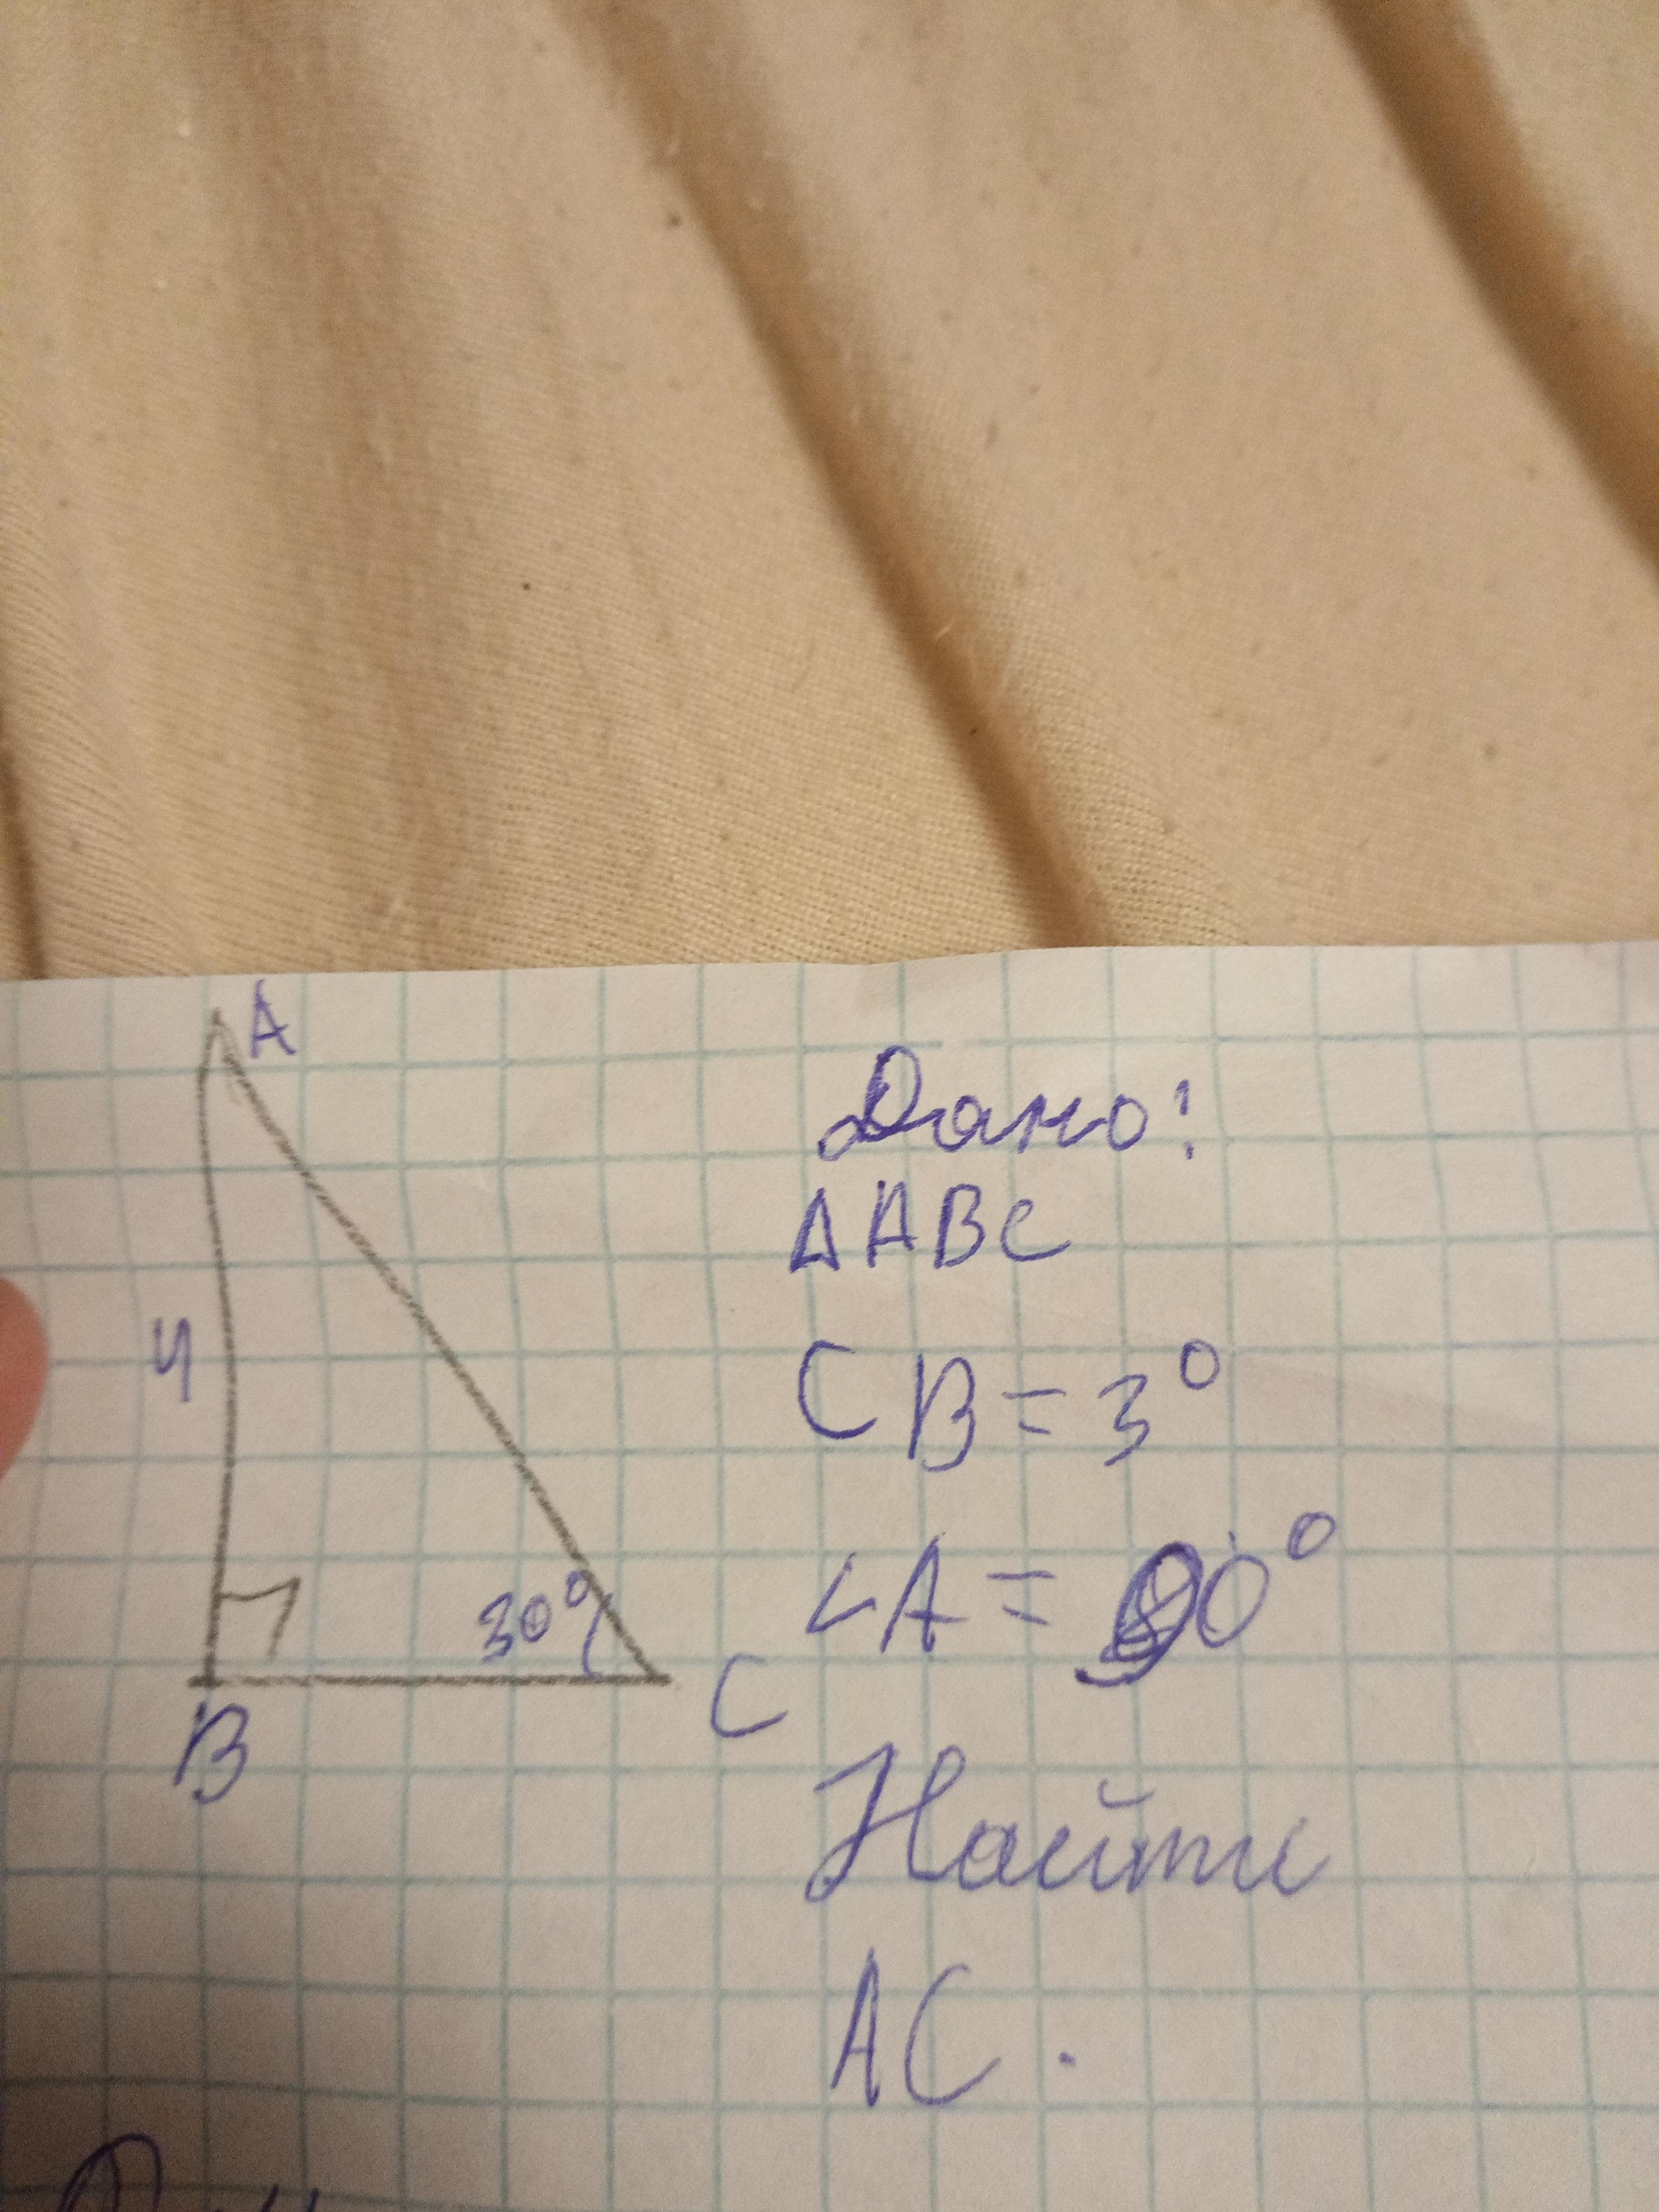 A
4
30°
B
C
Дано:
ΔABC
CB=3°
∠A=90°
Найти
AC.